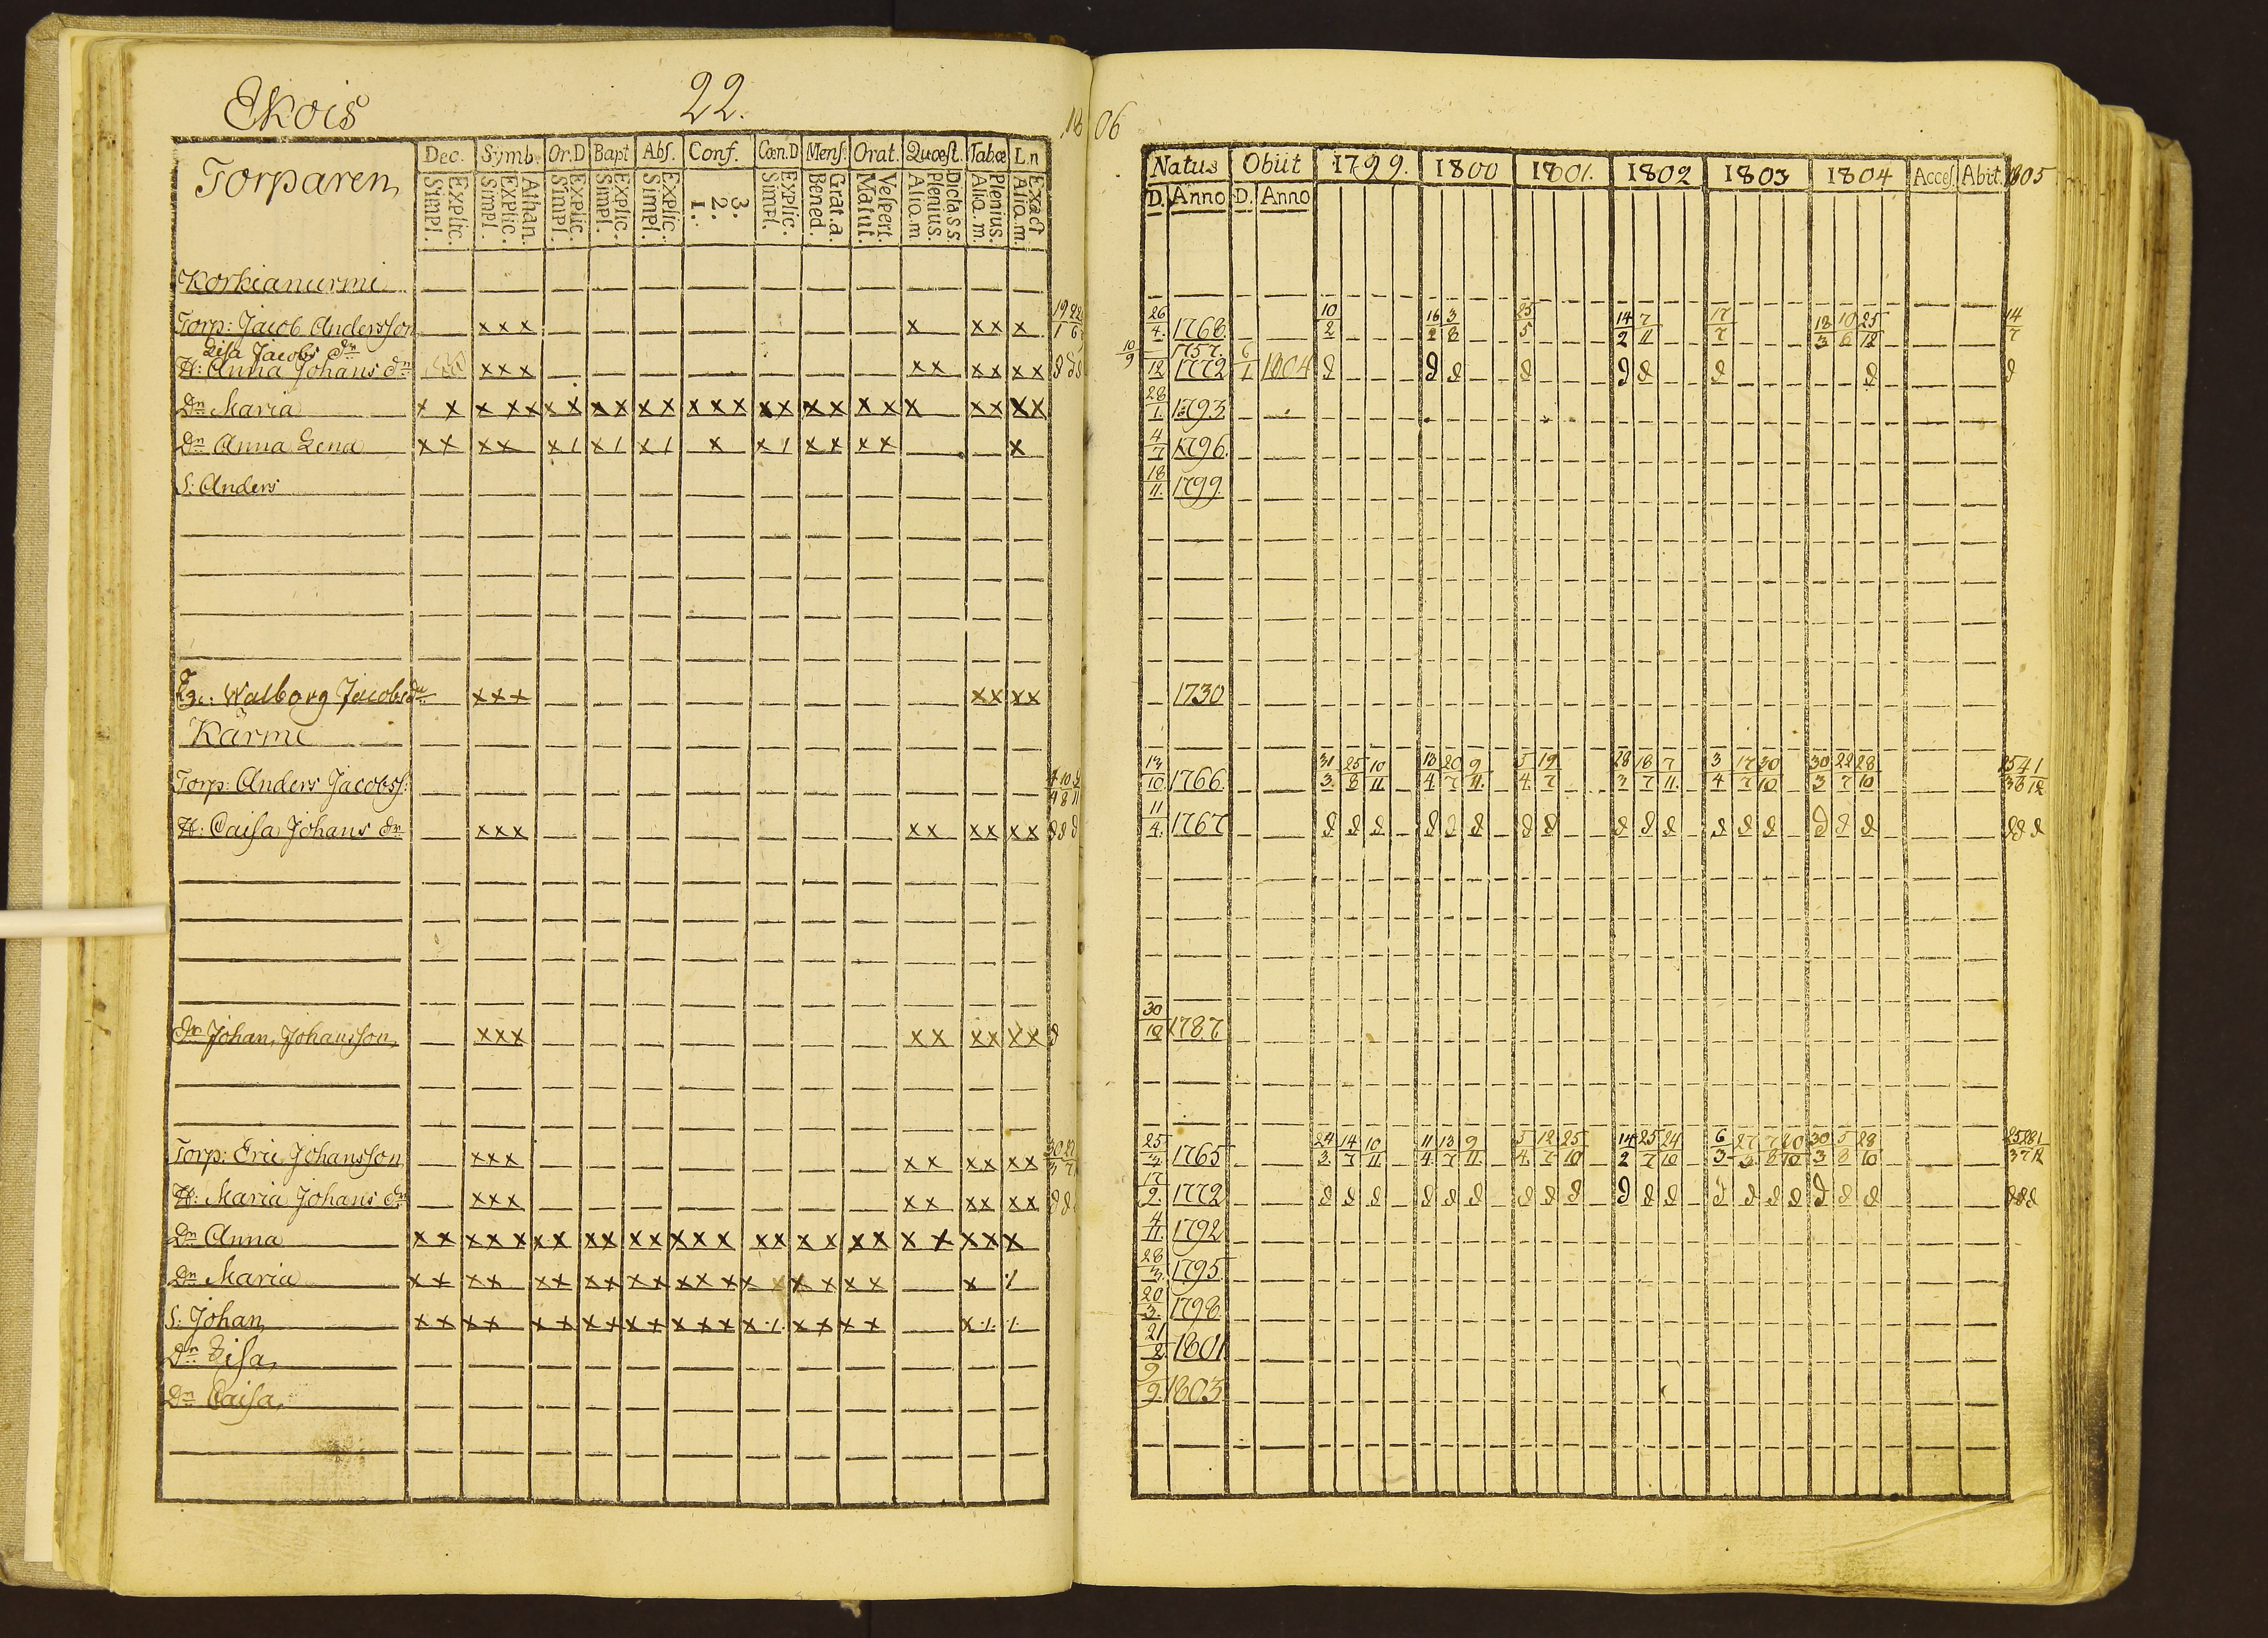 Ekois 22. 18 06
Torparen Dec. Symb. Or.D Bapt Abs. Conf. Cœn.D Mens. Orat. Quæst. Tab.æ L.n
Simpl. Explic. Simpl. Explic. Athan. Simpl. Explic. Simpl. Explic. Simpl. Explic. 1. 2. 3. Simpl. Explic. Bened. Grat.a. Matut. Vespert. Alio.m Plenius. Dicta s.s. Alio.m. Plenius. Alio.m. Exact
Natus Obiit 1799. 1800 1801. 1802 1803 1804 Acces. Abit. 1805
D. Anno D. Anno
Korkianurmi
Torp: Jacob Andersson x x x x x x x 26/4. 1768. 10/2 16/2 3/8 25/5 14/2 7/11 17/7 18/3 10/6 25/12 14/7
Lisa Jacobs dr 10/9 1757.
H: Anna Johans dr x x x x x x x x x 12 1772 6/1 1804
Dr Maria x x x x x x x x x x x x x x x x x x x x x x x x x 28/1. 1793
Dr Anna Lena x x x x x 1 x 1 x 1 x x 1 x x x x x 4/7 1796.
S: Anders 18/11. 1799.
Walborg Jacobs dr x x x x x x x 1730
Kärmi
Torp: Anders Jacobss: 13/10 1766. 31/3. 25/8 10/11 13/4 20/7 9/11. 5/4. 19/7 28/3 18/7 7/11. 3/4 17/7 30/10 30/3 22/7 28/10
H: Caisa Johans dr x x x x x x x x x 11/4. 1767
Johan Johansson x x x x x x x x x 30/10 1787
Torp: Eric Johansson x x x x x x x x x 25/3 1765 24/3. 14/7 10/11 11/4. 13/7 9/11. 5/4. 12/7 25/10 14/2 25/7 24/10 6/3 27/3 7/8 20/10 30/3 5/8 28/10
H: Maria Johans dr x x x x x x x x x 17/2. 1772
Dr Anna x x x x x x x x x x x x x x x x x x x x x x x x x 4/11. 1792
Dr Maria x x x x x x x x x x x x x x x x x x x x 1 28/3. 1795
S: Johan x x x x x x x x x x x x x x 1. x x x x x 1. 1 20/3. 1798
Dr Lisa 21/2. 1801
Dr Caisa 9/9. 1803